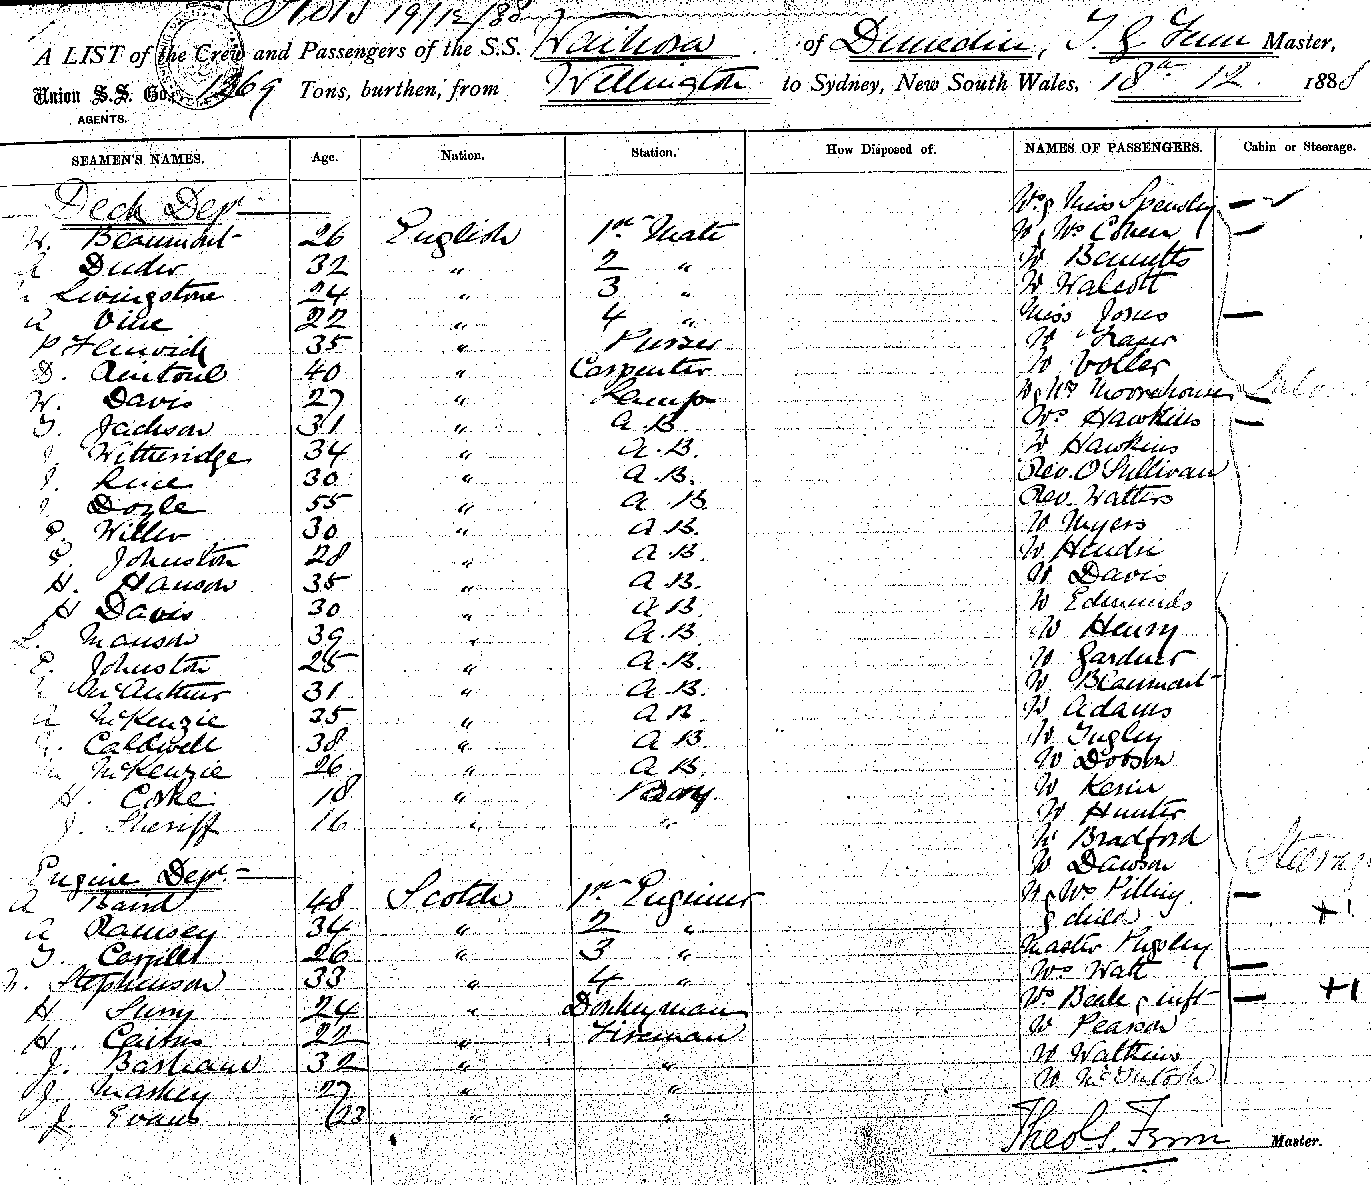 19/12/88
A LIST of the Crew and Passengers of the S.S. Waihora of Dunedin, T G Fenn Master,
Union S.S. Co., 1269 Tons, burthen, from Wellington to Sydney, New South Wales, 18th 12 1888
AGENTS.
SEAMEN'S NAMES. Age. Nation. Station. How Disposed of. NAMES OF PASSENGERS. Cabin or Steerage.
Deck Dept Mrs & Miss Spensley
W. Beaumont 26 English 1st Mate Mr & Mrs Cohen
A Duder 32 " 2 " Mr Bennetts
Livingstone 24 " 3 " Mr Walcott
A Vine 22 " 4 " Miss Jones
P Fenwick 35 " Purser Mr Fraser
D. 40 " Carpenter Mr Voller
W. Davis 27 " Lamps Mr & Mrs Moorehouse
T. Jackson 31 " A.B. Mrs Hawkins
J. Witheridge 34 " A.B. Mr Hawkins
J. 30 " A.B. Rev. O'Sullivan
J Doyle 55 " A B. Rev. Watters
P. Willer 30 " A B. Mr Myers
P. Johnston 28 " A B. Mr Hendri
H. Hanson 35 " A B. Mr Davis
H Davis 30 " A B. Mr Edmunds
L. Manson 39 " A.B. Mr Henry
E. Johnston 25 " A.B. Mr Gardner
McArthur 31 " A.B. Mr Beaumont
A McKenzie 35 " A B. Mr Adams
Caldwell 38 " A B. Mr Tugley
McKenzie 26 " A B. Mr Dobson
H. Coske 18 " Boy Mr Kerin
J. Sheriff 16 " " Mr Hunter
Mr Bradford
Engine Dept. Mr Dawson Steerage
A Baird 48 Scotch 1st Engineer Mr & Mrs Pilling
A Ramsey 34 " 2 " & child +1
T. 26 " 3 " Master Pugley
N. Stephenson 33 " 4 " Mrs Watt
H 24 " Donkeyman Mrs Beale & inft +1
H. Cairns 22 " Fireman Mr Pearson
J. Basham 32 " " Mr Watkins
J Maskey 27 " " Mr McIntosh
J. Evans 23 " "
Theo G. Fenn Master.